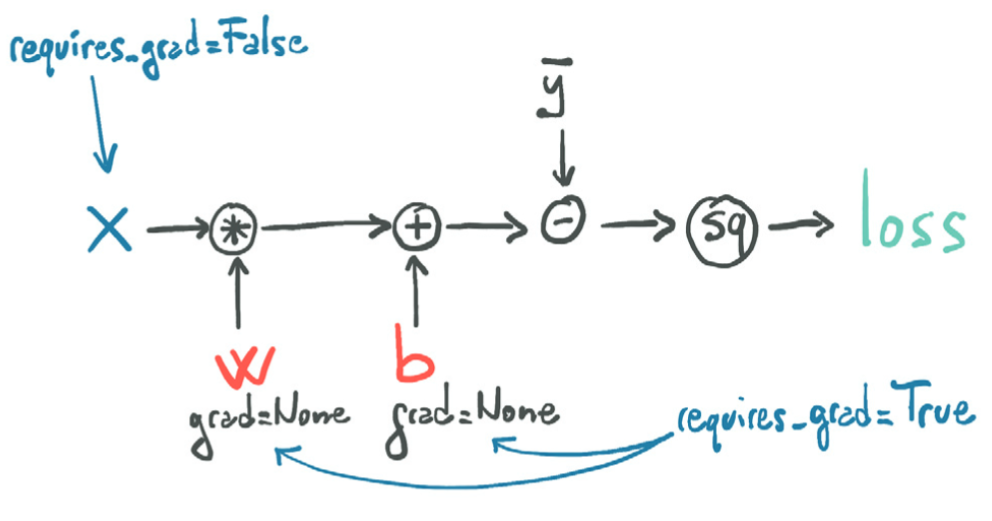 requires_grad=False
ȳ
X
*
+
-
sq
loss
w
b
grad=None
grad=None
requires_grad=True